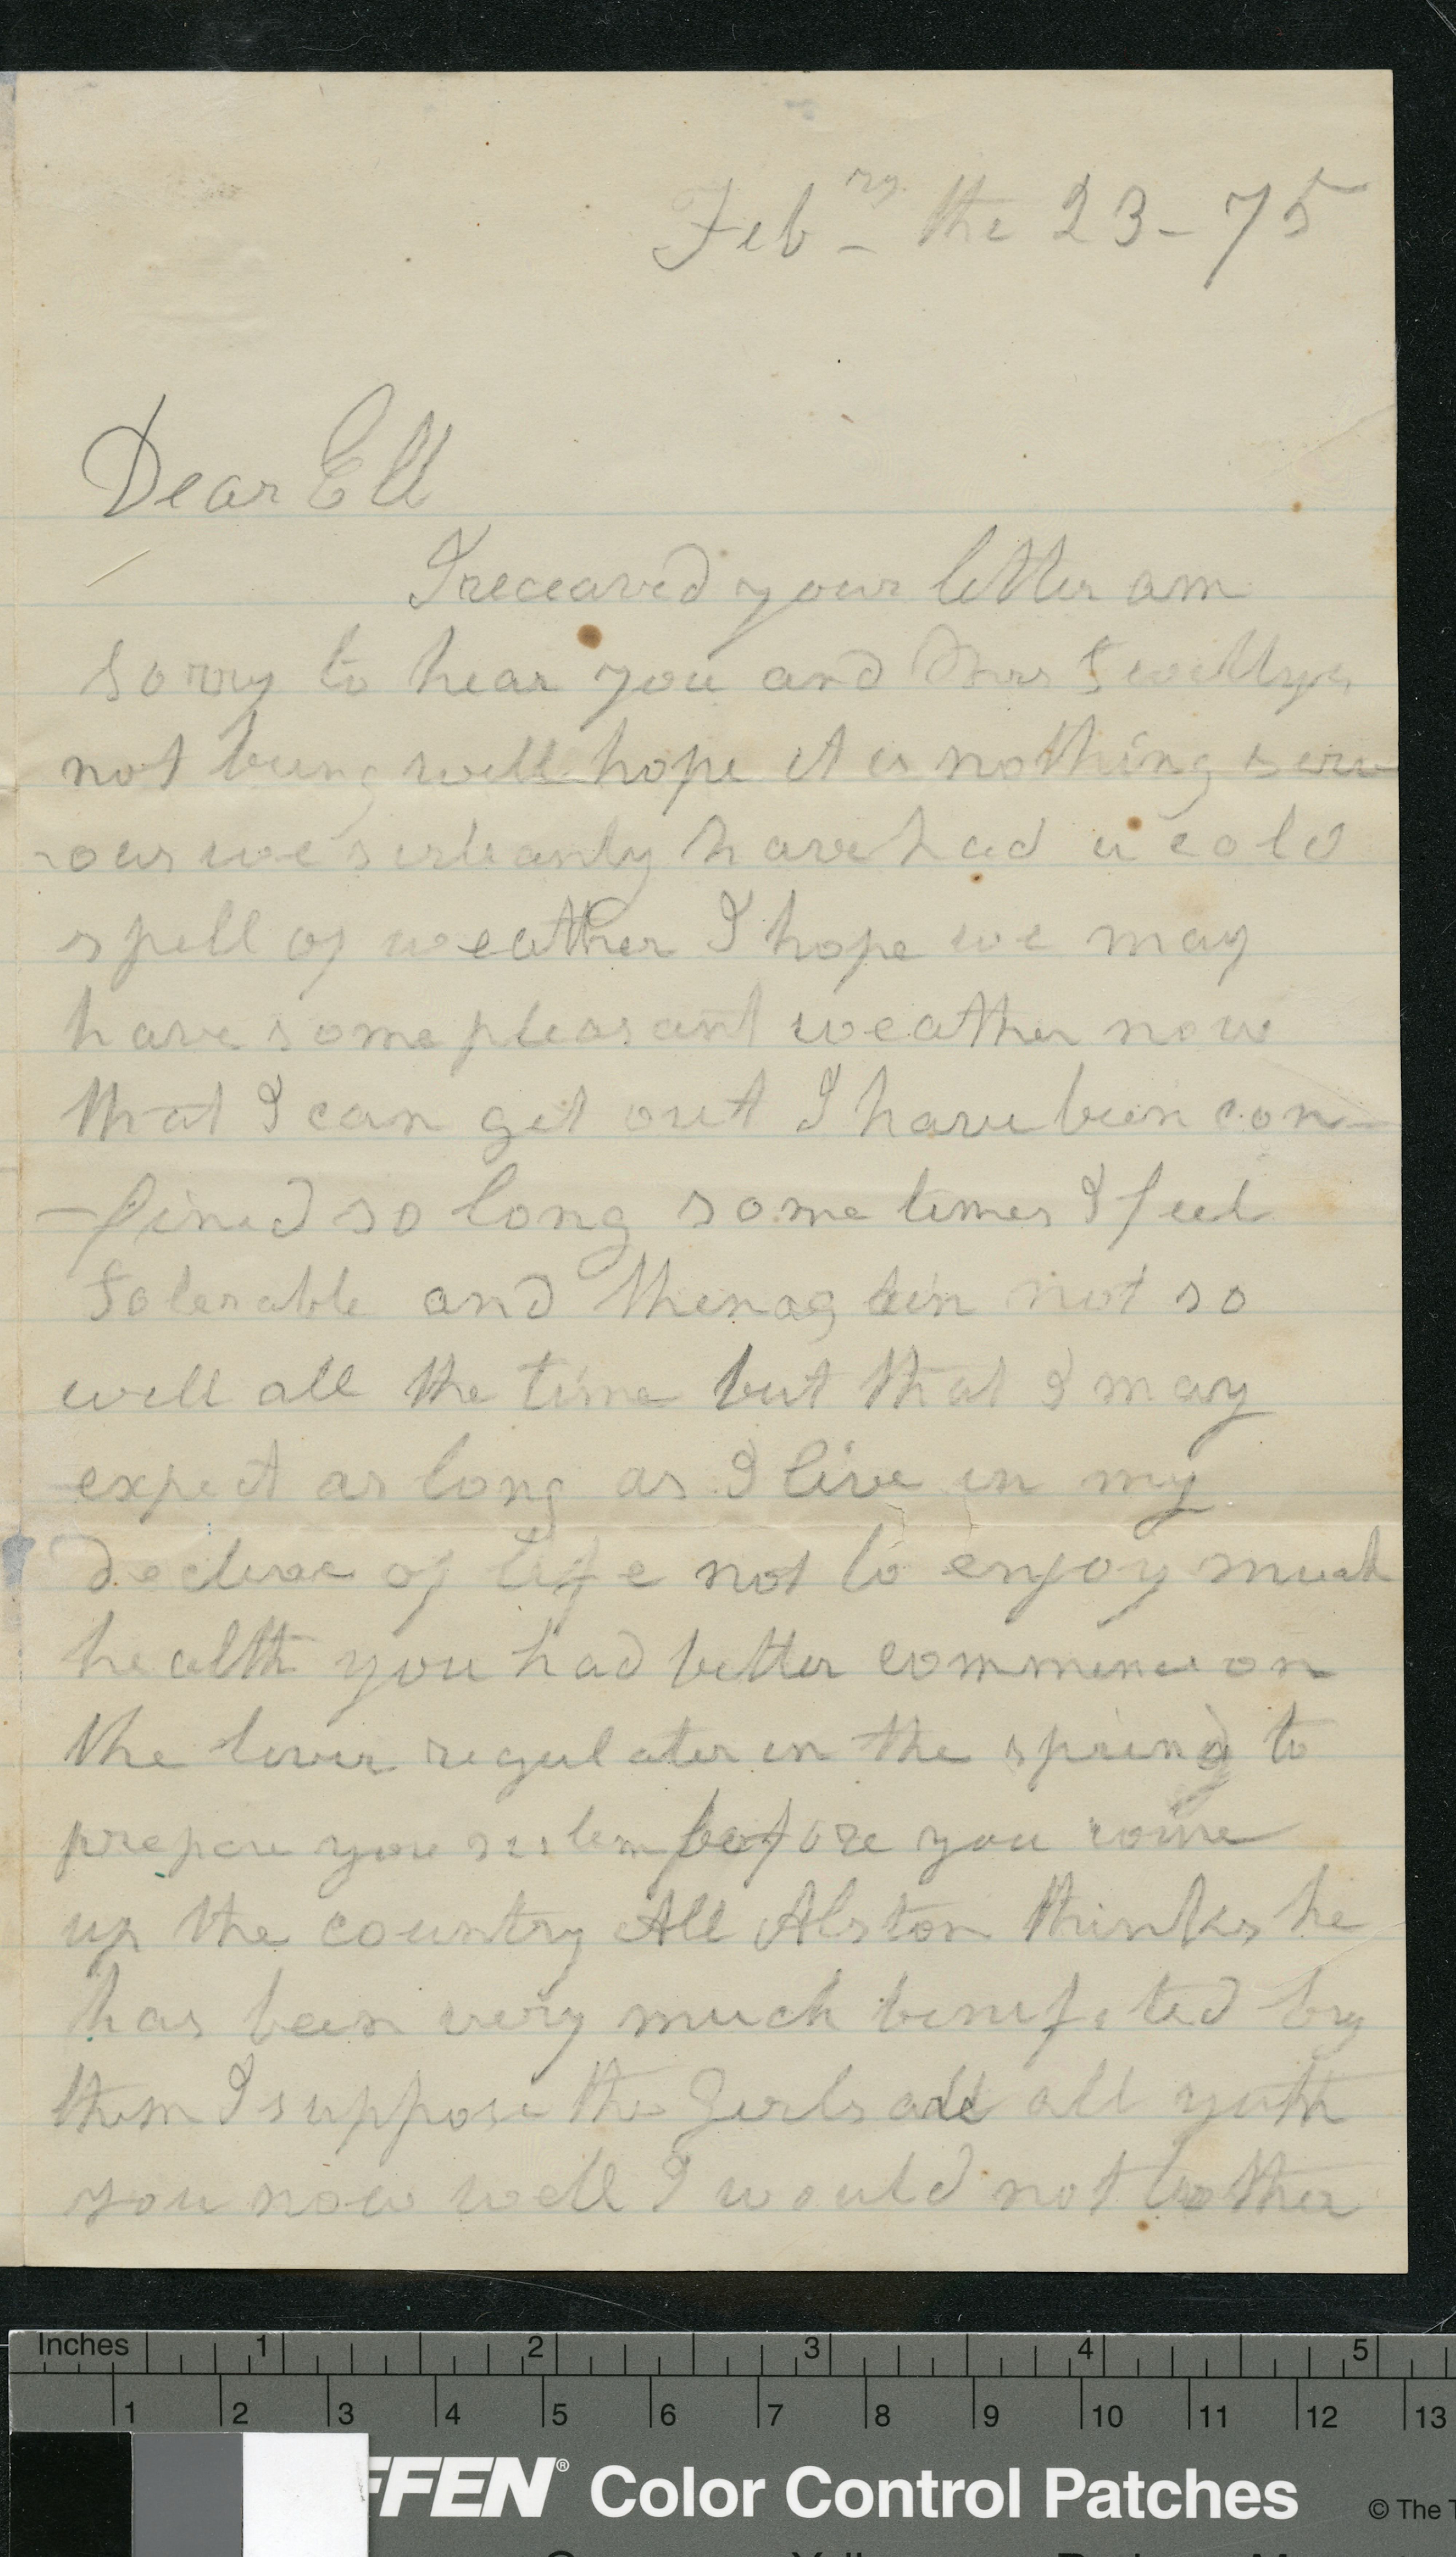 Feb ry the 23 - 75
Dear Ell
I receaved your letter am
sorry to hear you and Mrs
not being well hope it is nothing seri
-ous we sirteanly have had a cold
spell of weather I hope we may
have some pleasant weather now
that I can get out I have been con-
-fined so long some times I feel
tolerable and then again not so
well all the time but that I may
expect as long as I live in my
decline of life not to enjoy much
health you had better commence on
the liver regulater in the spring to
prepare your sistem before you come
up the country All Alston thinks he
has been very much benefited by
them I suppose the Girls are all
you now well I would not bother
Inches 1 2 3 4 5
1 2 3 4 5 6 7 8 9 10 11 12 13
FFEN® Color Control Patches © The T